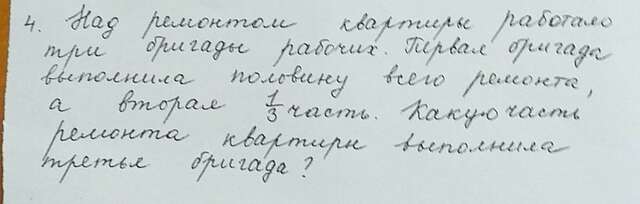 4. Над ремонтом квартиры работало
три бригады рабочих. Первая бригада
выполнила половину всего ремонта,
а вторая 1/3 часть. Какую часть
ремонта квартиры выполнила
третья бригада?